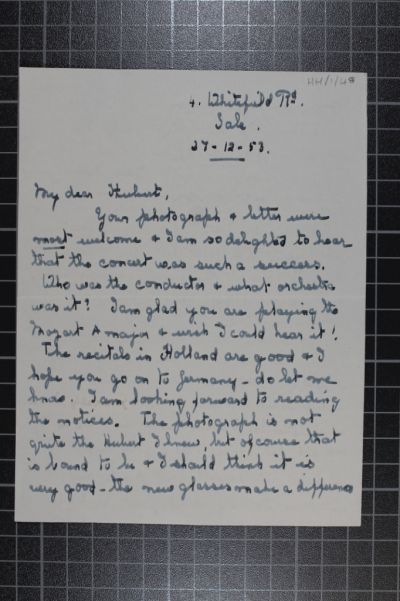 HH/1/48
4. Whitefield Rd.
Sale.
27-12-53.
My dear Hubert,
Your photograph & letter were
most welcome & I am so delighted to hear
that the concert was such a success.
Who was the conductor & what orchestra
was it? I am glad you are playing the
Mozart A major & wish I could hear it!
The recitals in Holland are good & I
hope you go on to Germany - do let me
know. I am looking forward to reading
the notices. The photograph is not
quite the Hubert I knew, but of course that
is bound to be & I should think it is
very good - the new glasses make a difference